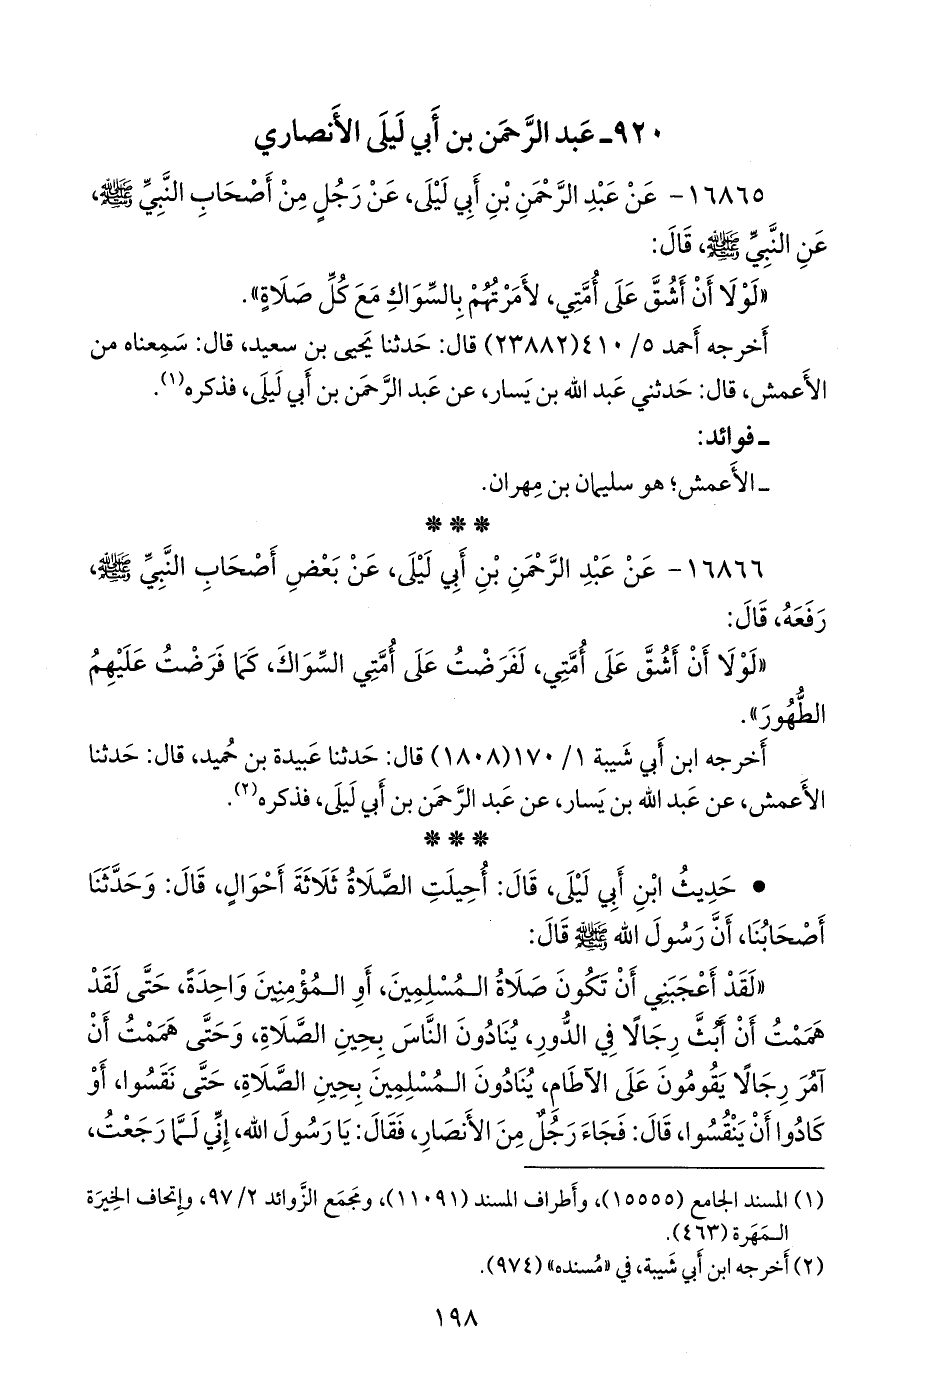 ٩٢٠ـ عَبد الرَّحمَن بن أَبي لَيلَى الأَنصاري
١٦٨٦٥ - عَنْ عَبْدِ الرَّحْمَنِ بْنِ أَبِي لَيْلَى، عَنْ رَجُلٍ مِنْ أَصْحَابِ النَّبِيِّ ﷺ،
عَنِ النَّبِيِّ ﷺ، قَالَ:
«لَوْلَا أَنْ أَشُقَّ عَلَى أُمَّتِي، لأَمَرْتُهُمْ بِالسِّوَاكِ مَعَ كُلِّ صَلَاةٍ».
أَخرجه أَحمد ٥/ ٤١٠(٢٣٨٨٢) قال: حَدثنا يَحيى بن سعيد، قال: سَمِعناه من
الأَعمش، قال: حَدثني عَبد الله بن يَسار، عن عَبد الرَّحمَن بن أَبي لَيلَى، فذكره(١).
ـ فوائد:
ـ الأَعمش؛ هو سليمان بن مِهران.
***
١٦٨٦٦ - عَنْ عَبْدِ الرَّحْمَنِ بْنِ أَبِي لَيْلَى، عَنْ بَعْضِ أَصْحَابِ النَّبِيِّ ﷺ،
رَفَعَهُ، قَالَ:
«لَوْلَا أَنْ أَشُقَّ عَلَى أُمَّتِي، لَفَرَضْتُ عَلَى أُمَّتِي السِّوَاكَ، كَمَا فَرَضْتُ عَلَيْهِمُ
الطُّهُورَ».
أَخرجه ابن أَبي شَيبة ١/ ١٧٠(١٨٠٨) قال: حَدثنا عَبيدة بن حُميد، قال: حَدثنا
الأَعمش، عن عَبد الله بن يَسار، عن عَبد الرَّحمَن بن أَبي لَيلَى، فذكره(٢).
***
• حَدِيثُ ابْنِ أَبِي لَيْلَى، قَالَ: أُحِيلَتِ الصَّلَاةُ ثَلَاثَةَ أَحْوَالٍ، قَالَ: وَحَدَّثَنَا
أَصْحَابُنَا، أَنَّ رَسُولَ الله ﷺ قَالَ:
«لَقَدْ أَعْجَبَنِي أَنْ تَكُونَ صَلَاةُ الْمُسْلِمِينَ، أَوِ الْمُؤْمِنِينَ وَاحِدَةً، حَتَّى لَقَدْ
هَمَمْتُ أَنْ أَبُثَّ رِجَالًا فِي الدُّورِ، يُنَادُونَ النَّاسَ بِحِينِ الصَّلَاةِ، وَحَتَّى هَمَمْتُ أَنْ
آمُرَ رِجَالًا يَقُومُونَ عَلَى الآطَامِ، يُنَادُونَ الْمُسْلِمِينَ بِحِينِ الصَّلَاةِ، حَتَّى نَقَسُوا، أَوْ
كَادُوا أَنْ يَنْقُسُوا، قَالَ: فَجَاءَ رَجُلٌ مِنَ الأَنصَارِ، فَقَالَ: يَا رَسُولَ الله، إِنِّي لَمَّا رَجَعْتُ،
(١) المسند الجامع (١٥٥٥٥)، وأَطراف المسند (١١٠٩١)، ومَجمَع الزَّوائد ٢/ ٩٧، وإِتحاف الخِيرَة
الـمَهَرة (٤٦٣).
(٢) أَخرجه ابن أَبي شَيبة، في «مُسنده» (٩٧٤).
١٩٨